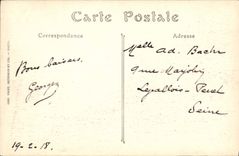 Carte Postale
Correspondance
Adresse
Bons baisers,
Georges
19-2-18.
Melle Ad. Bacher
9 rue
Levallois-Perret
Seine